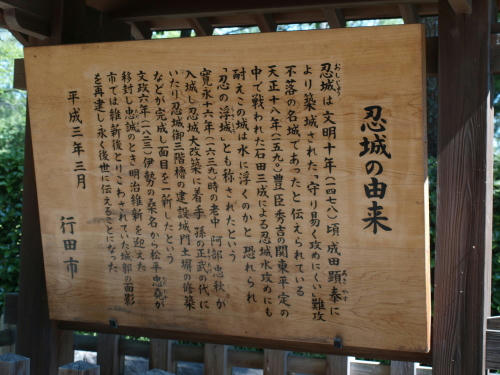 忍城の由来
おしじょう
忍城は文明十年(一四七八)頃成田顕泰に
あきやす
より築城された「守り易く攻めにくい」難攻
不落の名城であったと伝えられている
天正十八年(一五九〇)豊臣秀吉の関東平定の
中で戦われた石田三成による忍城水攻めにも
耐えこの城は水に浮くのかと恐れられ
「忍の浮城」とも称されたという
寛永十六年(一六三九)時の老中 阿部忠秋が
入城し忍城大改築に着手 孫の正武の代に
いたり忍城御三階櫓の建設城門土塀の修築
などが完成し面目を一新したという
文政六年(一八二三)伊勢の桑名から松平忠堯が
移封し忠誠のとき明治維新を迎えた
市では維新後とりこわされていた城郭の面影
を再建し永く後世に伝えることになった
平成三年三月
行田市